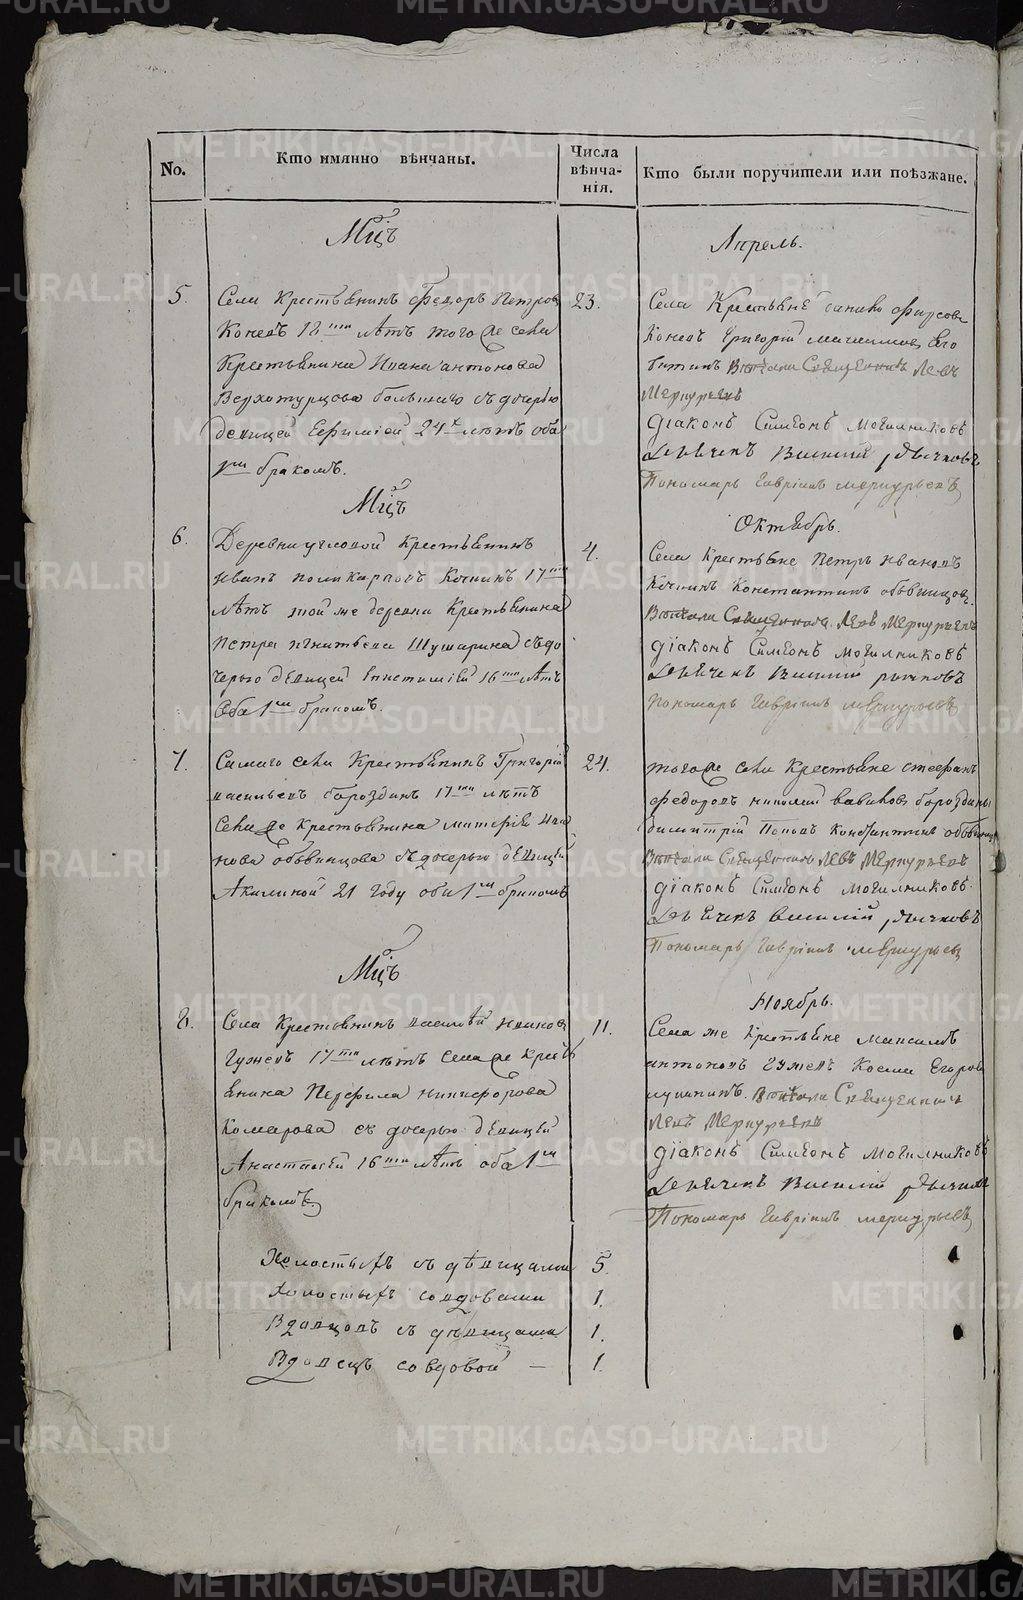 No.
Кто имянно вѣнчаны.
Числа
вѣнча-
нія.
Кто были поручители или поѣзжане.
Мцъ
Апрель.
5.
Села Крестьянинъ Федоръ Петровъ
Коневъ 18 лѣтъ того же села
Крестьянина Ивана Антонова
Верхотурцова большаго съ дочерью
девицей Евфимiей 24 х лѣтъ оба
1 мъ бракомъ.
23.
Села Крестьяне Фирсовъ
Коневъ Григорiй Его
Венчали Священникъ Левъ
Меркурьевъ
Дiаконъ Симеонъ Могильниковъ
Дьячекъ Василiй Дьячковъ
Пономарь Гаврiилъ Меркурьевъ
Мцъ
Октябрь.
6.
Деревни угловой Крестьянинъ
Иванъ Поликарповъ Кочкинъ 17 ти
лѣтъ той же деревни Крестьянина
Петра Игнатьева Шушарина съ до
черью девицей 16 ти лѣтъ
Оба 1 мъ бракомъ.
4.
Села Крестьяне Петръ Ивановъ
Кочкинъ Константинъ Обвинцовъ.
Венчали Священникъ Левъ Меркурьевъ
Дiаконъ Симеонъ Могильниковъ
Дьячекъ Василiй
Пономарь Гаврiилъ Меркурьевъ
7.
Самаго села Крестьянинъ Григорiй
Васильевъ Бороздинъ 17 ти лѣтъ
Села же Крестьянина Матфея Ива
нова Обвинцова съ дочерью девицей
Акилиной 21 году оба 1 мъ бракомъ
24.
того же села Крестьяне Стефанъ
Федоровъ Николай Бороздины
Димитрiй Поповъ Константинъ Обвинцовъ
Венчали Священникъ Левъ Меркурьевъ
Дiаконъ Симеонъ Могильниковъ.
Дьячекъ Василiй Дьячковъ
Пономарь Гаврiилъ Меркурьевъ
Мцъ
Ноябрь.
8.
Села Крестьянинъ Василiй Ивановъ
Гужевъ 17 ти лѣтъ села же Кресть
янина Перфила Никифорова
Комарова съ дочерью девицей
Анастасiей 16 ти лѣтъ оба 1 мъ
бракомъ
11.
Села же Крестьяне Максимъ
Антоновъ Гужевъ Косма Егоровъ
Венчали Священникъ
Левъ Меркурьевъ
Дiаконъ Симеонъ Могильниковъ
Дьячекъ Василiй Дьячковъ
Пономарь Гаврiилъ Меркурьевъ
Холостыхъ съ дѣвицами 5.
Холостыхъ со вдовами 1.
Вдовцовъ съ дѣвицами 1.
Вдовецъ со вдовой — 1.
METRIKI.GASO-URAL.RU